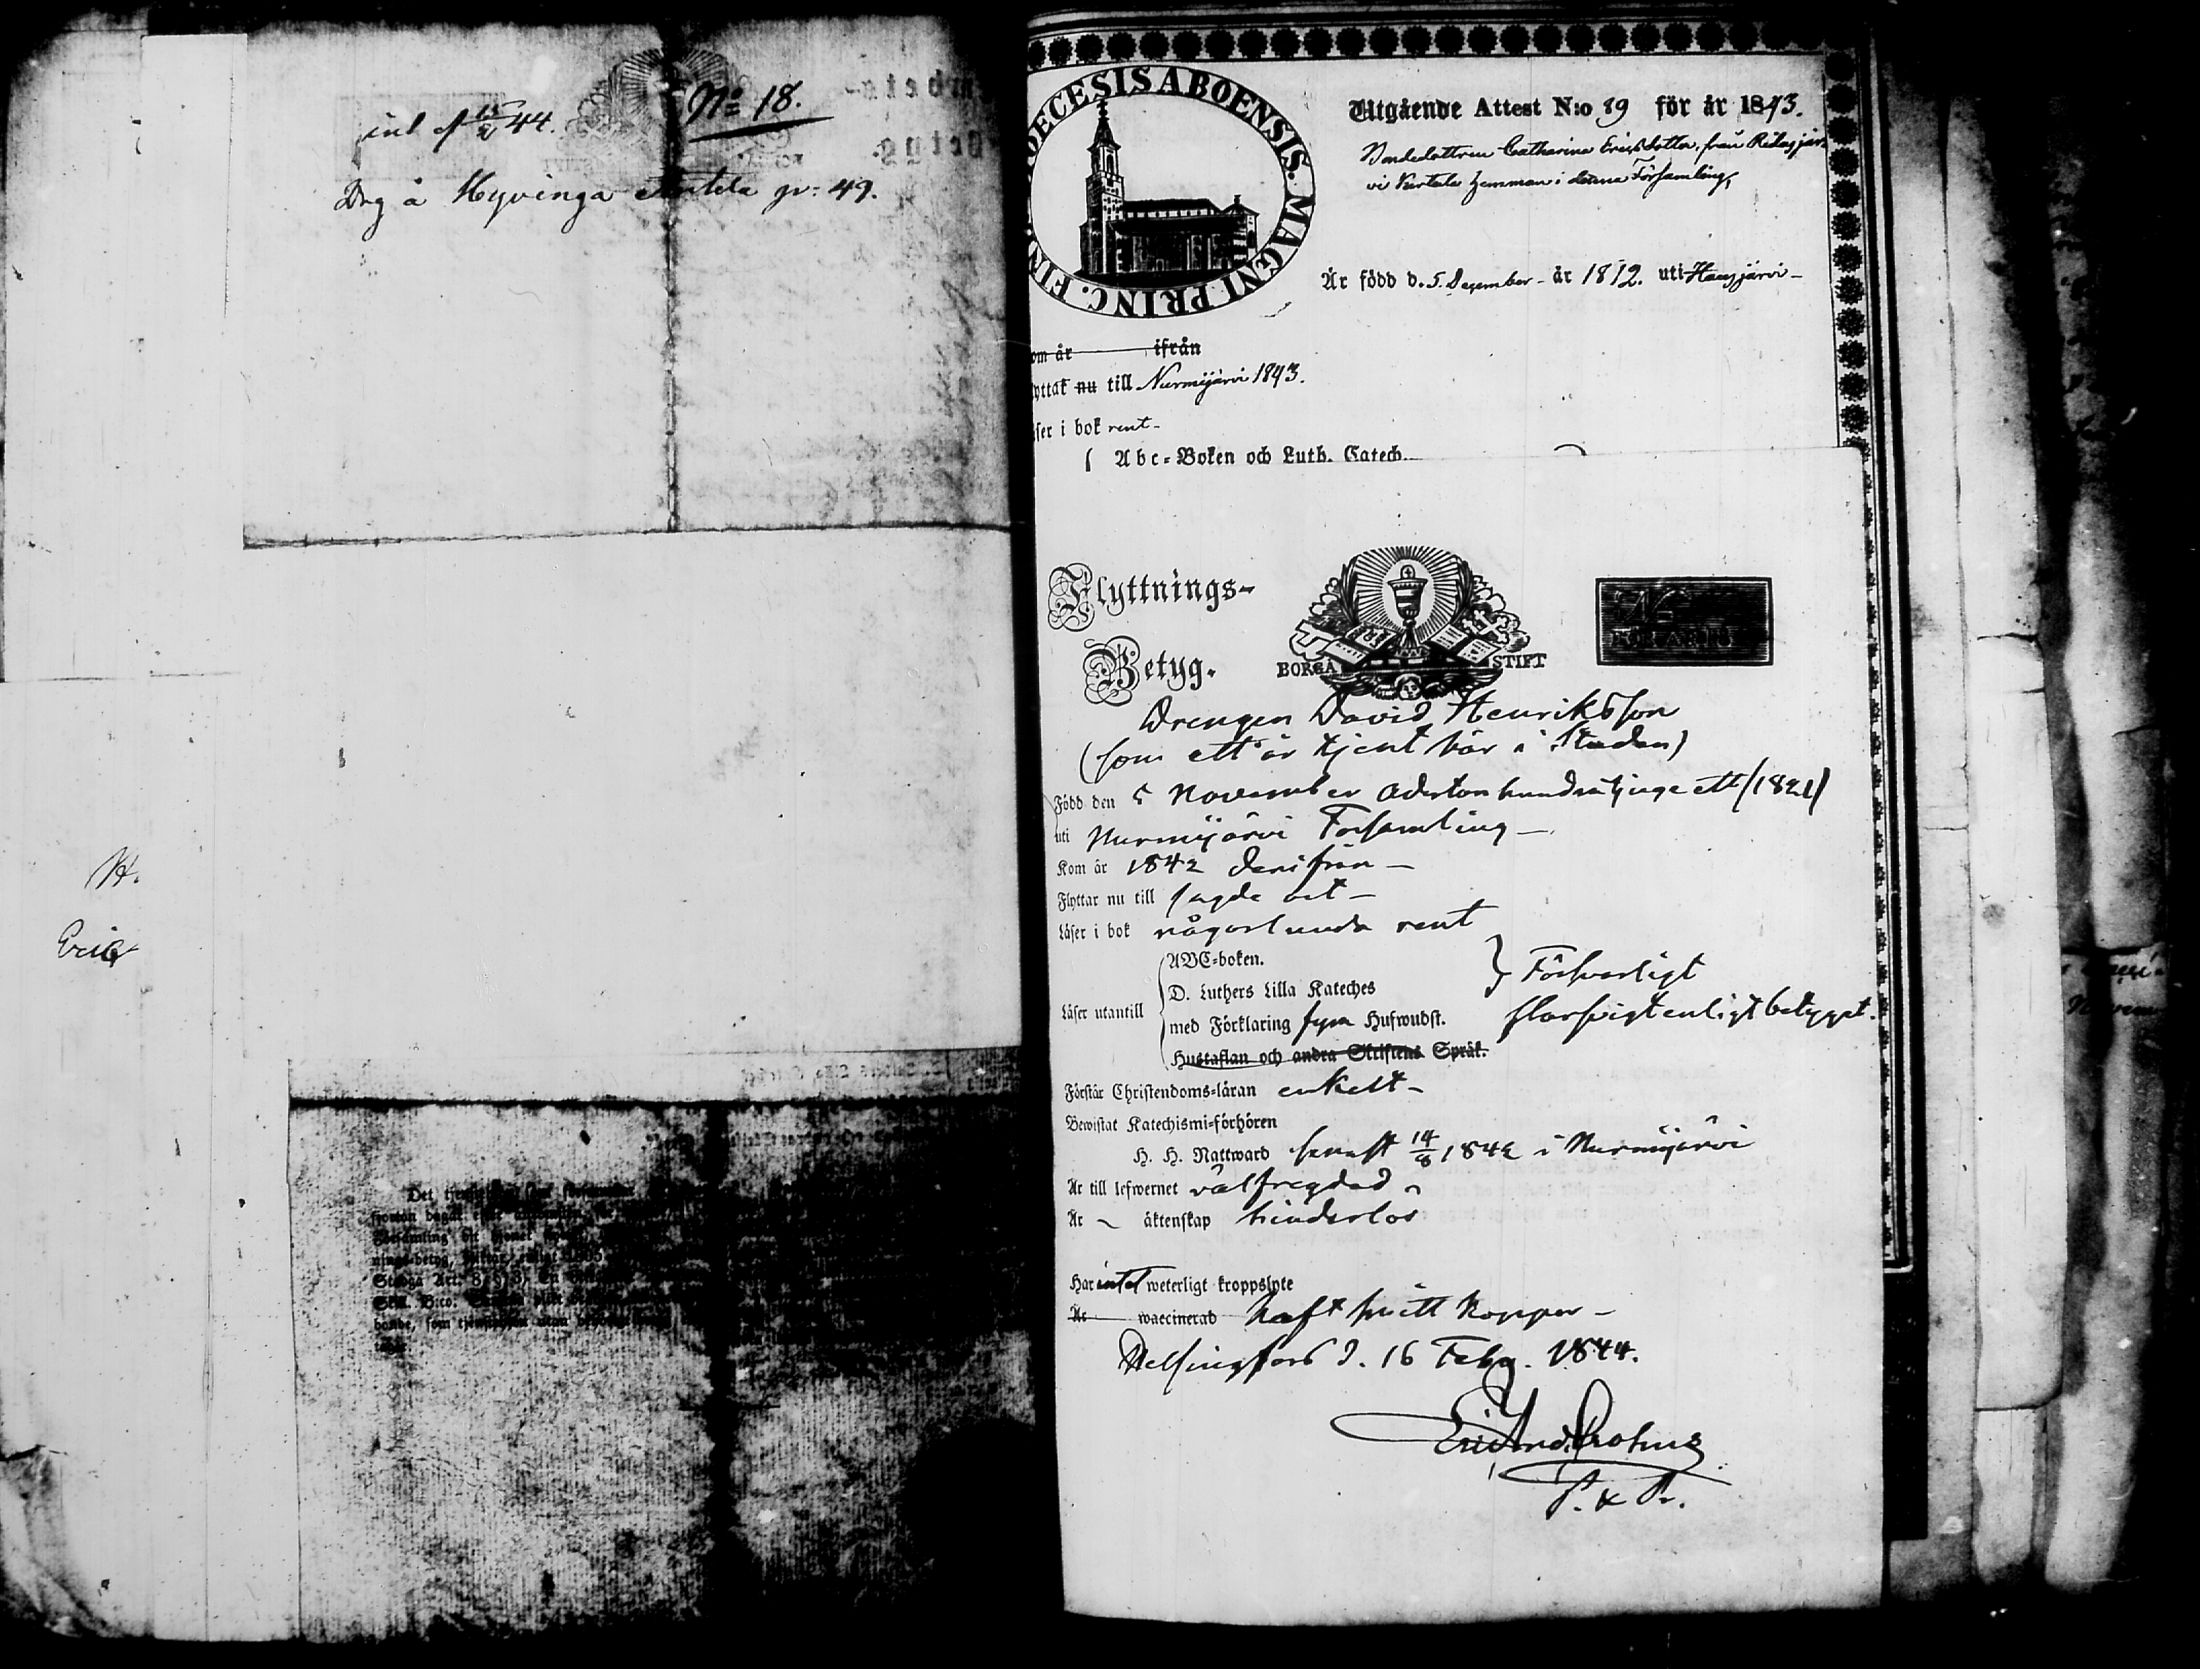 inl af 15/2 44.
No 18.
Drg å Hyvinga Anttila pr: 49.
H.
Eric
Det
Stadga Art. 8
DIOECESIS ABOENSIS. MAGNI PRINC. FIN
Utgående Attest N:o 89 för år 1843.
Bondedottren Catharina Ericsdotter, från Ridasjär-
vi hemman i denna Församling,
Är född d. 5. December - år 1812. uti Hausjärvi -
om år ifrån
yttat nu till Nurmijärvi 1843.
äser i bok rent -
Abc-Boken och Luth. Catech.
Flyttnings-
Betyg.
BORGÅ STIFT
No
FÖR ÅR 18
Drengen David Henriksson
(som ett år tjent här i Staden)
Född den 5 November adertonhundratjugeett (1821)
uti Nurmijärvi Församling -
Kom år 1842 derifrån -
Flyttar nu till sagde ort -
Läser i bok någorlunda rent
Läser utantill
ABC-boken.
D. Luthers Lilla Kateches
med Förklaring fyra Hufwudst.
Hustaflan och andra Skriftens Språk.
Försvarligt
slarfvigt enligt betyget.
Förstår Christendoms-läran enkelt -
Bewistat Katechismi-förhören
H. H. Nattward senast 14/8 1842 i Nurmijärvi
Är till lefwernet välfregdad
Är - äktenskap hinderlös
Har intet weterligt kroppslyte
Är waccinerad haft svitt koppor -
Helsingfors d. 16 Feby. 1844.
Eric And. Crohns
P. & Pr.